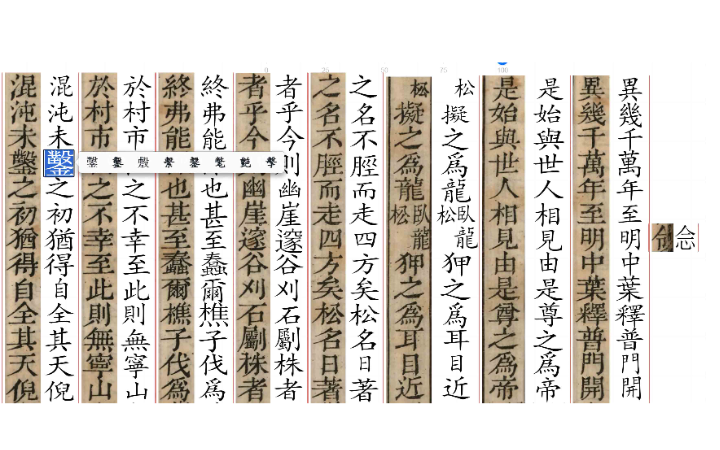 念
異幾千萬年至明中葉釋普門開
異幾千萬年至明中葉釋普門開
是始與世人相見由是尊之爲帝
是始與世人相見由是尊之爲帝
松擬之爲龍臥龍松狎之爲耳目近
松擬之爲龍臥龍松狎之爲耳目近
之名不脛而走四方矣松名日著
之名不脛而走四方矣松名日著
者乎今則幽崖邃谷刈石劚株者
者乎今幽崖邃谷刈石劚株者
終弗能也甚至蠢爾樵子伐爲
終弗能也甚至蠢爾樵子伐爲
於村市之不幸至此則無寧山
於村市之不幸至此則無寧山
混沌未鑿之初猶得自全其天倪
混沌未鑿之初猶得自全其天倪